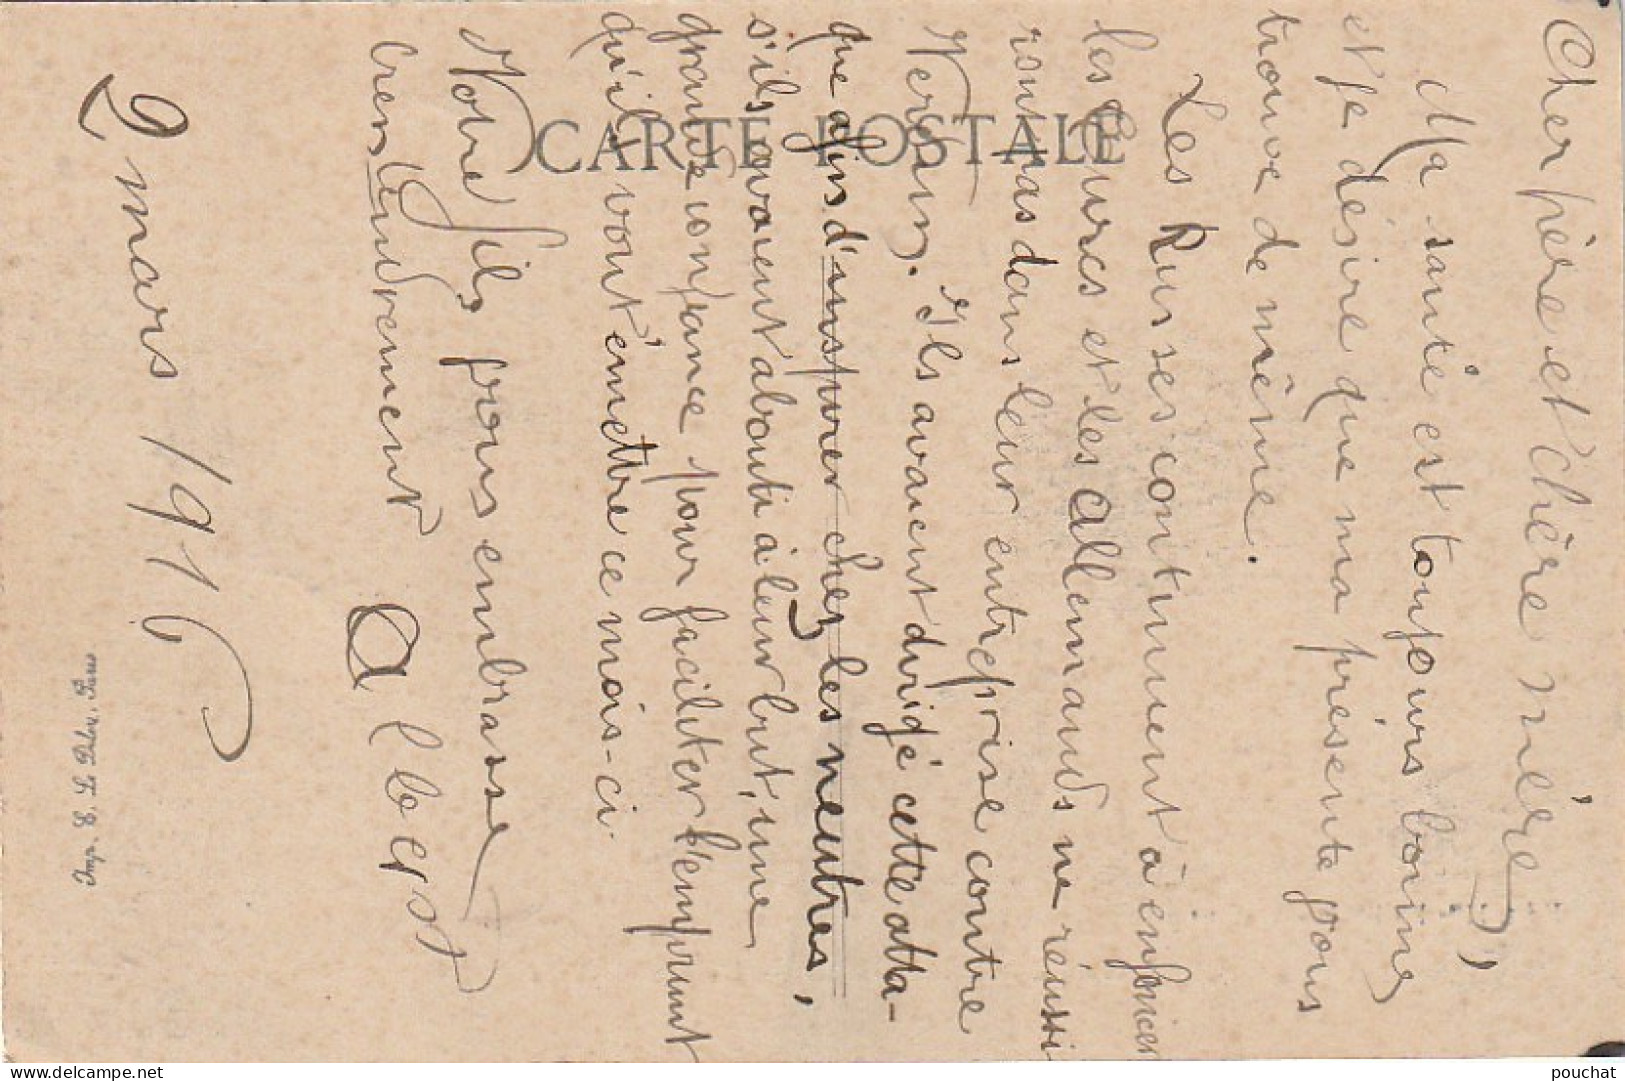 Cher père et chère mère,
Ma santé est toujours bonne
et je désire que ma présente vous
trouve de même.
Les Russes continuent à enfoncer
les Turcs et les allemands ne réussi
ront pas dans leur entreprise contre
Verdun. Ils avaient dirigé cette atta-
que afin d'inspirer chez les neutres,
s'ils avaient abouti à leur but, une
grande confiance pour faciliter l'emprunt
qu'ils vont émettre ce mois-ci.
Votre fils vous embrasse
bien tendrement
Albert
2 mars 1916
CARTE POSTALE
Imp. E. Le Deley, Paris
pouchat